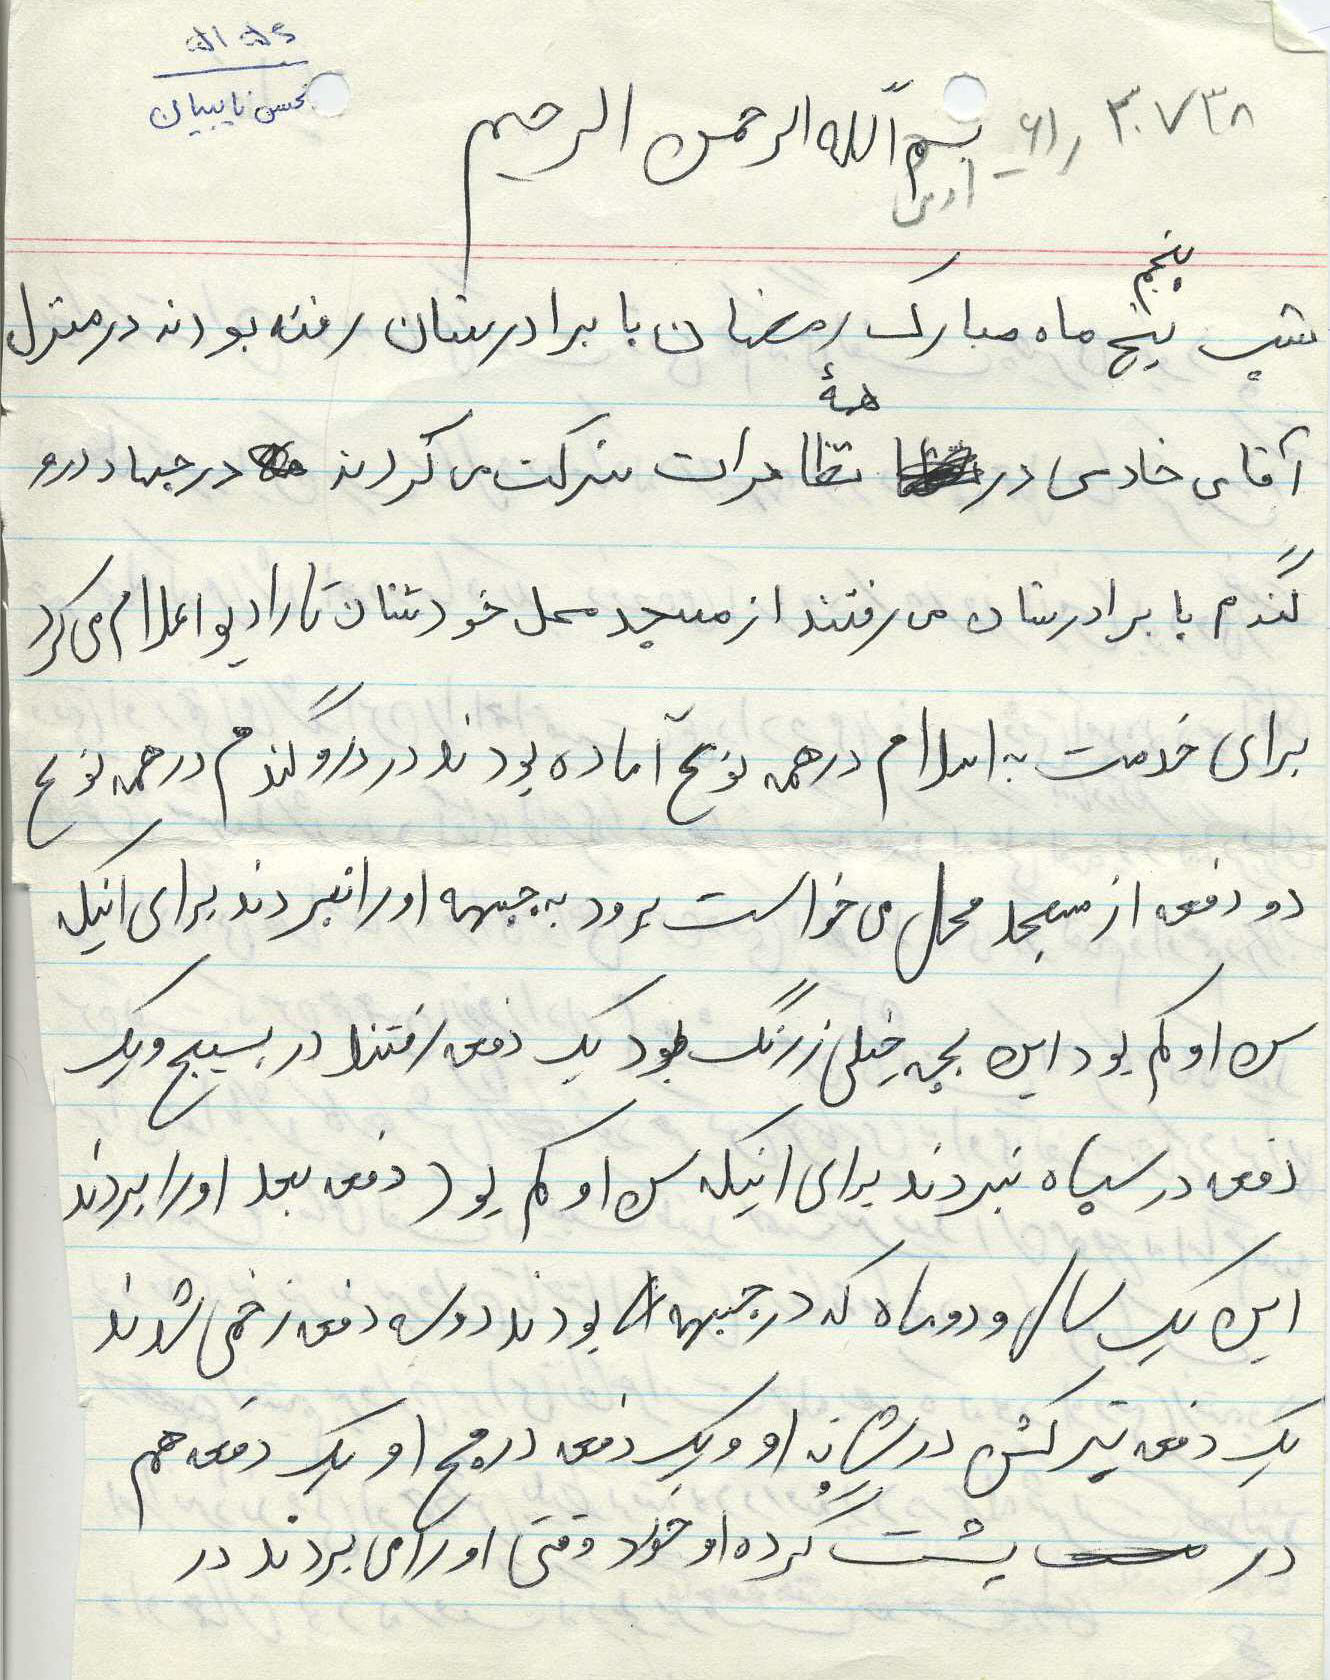 ۵۱۵۶
محسن نایبیان
۳۰۷۳۸ را۶
بسم الله الرحمن الرحیم
پنجم
شب پنج ماه مبارک رمضان با برادرشان رفته بودند در منزل
همهٔ
آقای خادمی در تظاهرات شرکت می کردند در جهاد درو
گندم با برادرشان می رفتند از مسجد محل خودشان تا رادیو اعلام می کرد
برای خدمت به اسلام در همه نوع آماده بودند در درو گندم در همه نوع
دو دفعه از مسجد محل می خواست برود به جبهه او را نبردند برای اینکه
سن او کم بود این بچه خیلی زرنگ بود یک دفعه رفتند در بسیج و یک
دفعه در سپاه نبردند برای اینکه سن او کم بود دفعه بعد او را بردند
این یک سال و دو ماه که در جبهه بودند دو سه دفعه زخمی شدند
یک دفعه تیر کش در شانه او و یک دفعه در مچ او یک دفعه هم
در پشت گرده او خورد وقتی او را می بردند در